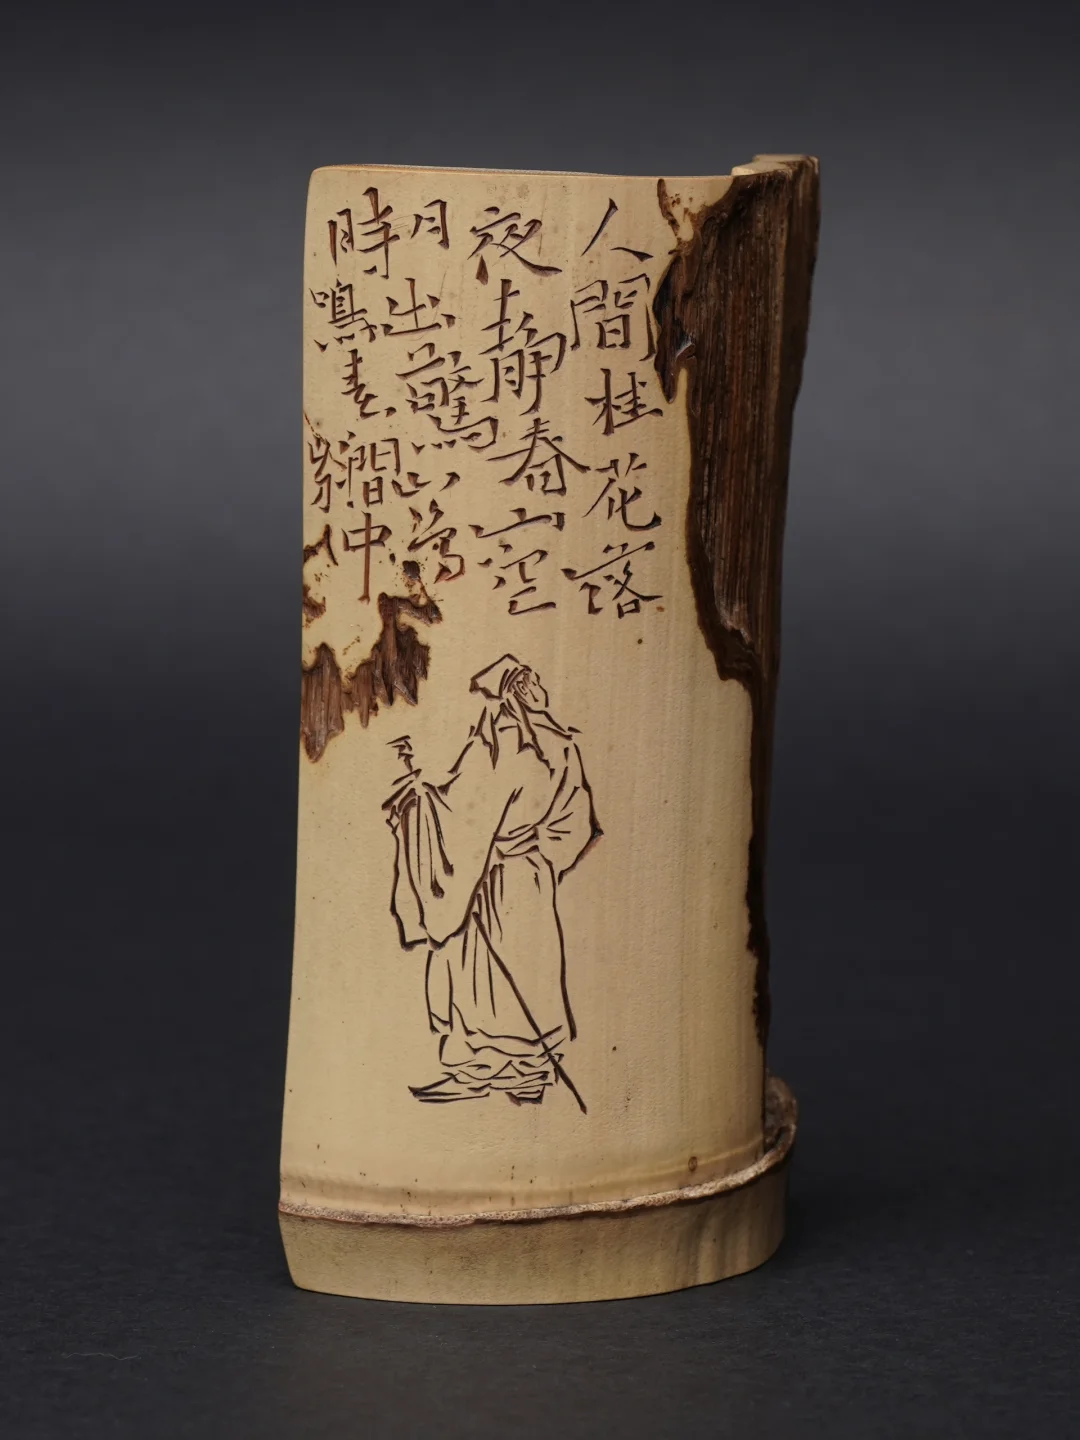 人間桂花落
夜静春山空
月出驚山鳥
時鳴春澗中